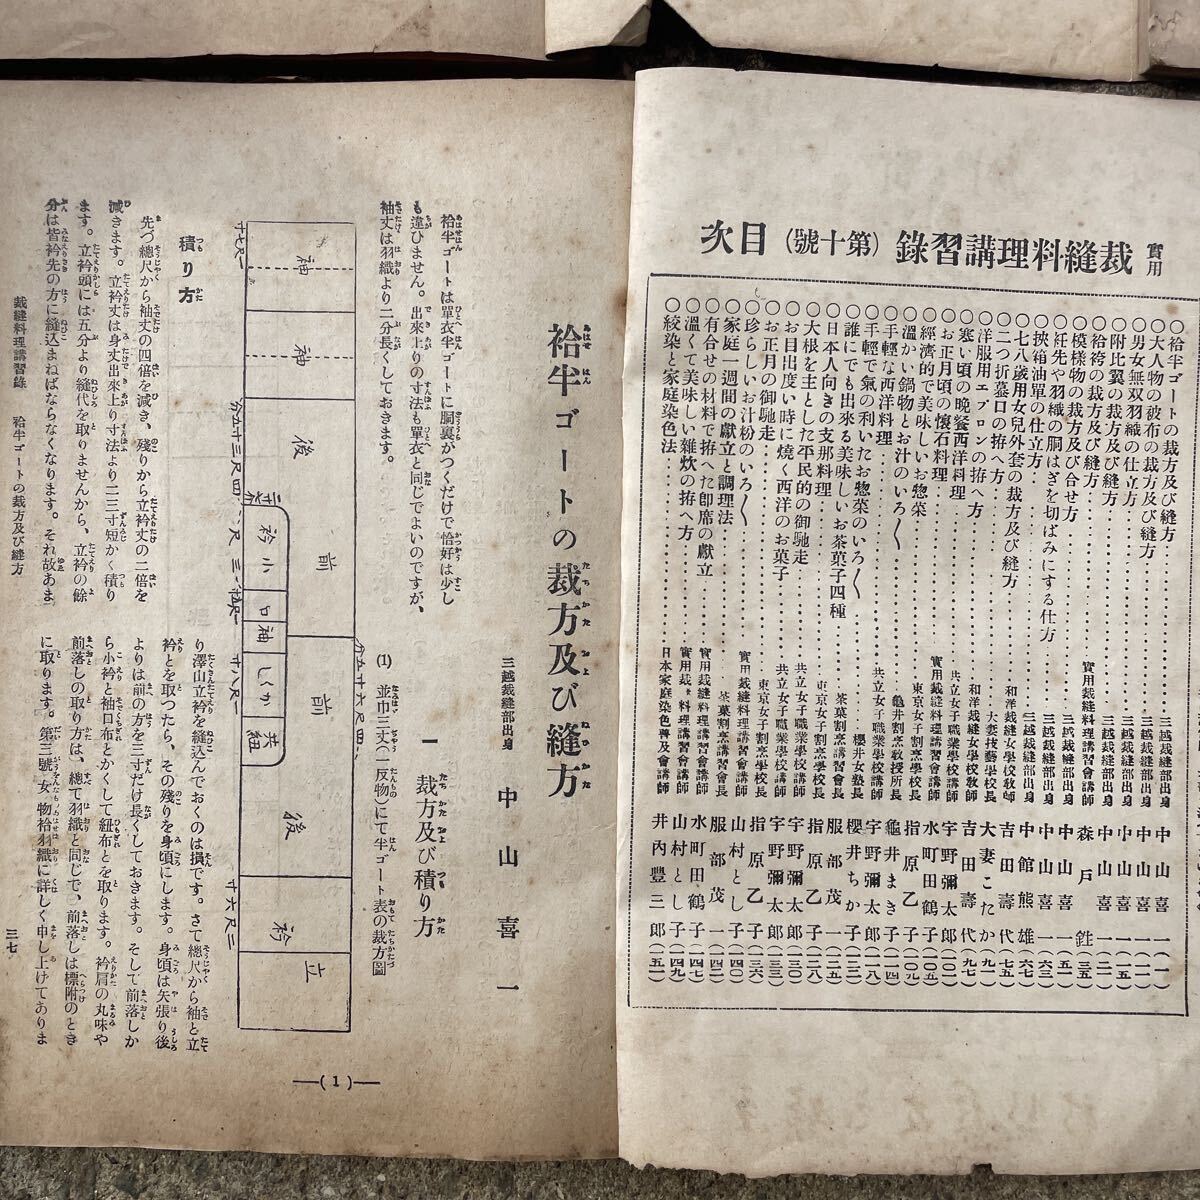 實用 裁縫料理講習錄（第十號）目次
○袷半ゴートの裁方及び縫方 三越裁縫部出身 中山喜一（一）
○大人物の被布の裁方及び縫方 三越裁縫部出身 中山喜一（一一）
○男女無双羽織の仕立方 三越裁縫部出身 中山喜一（一五）
○附比翼の裁方及び縫方 三越裁縫部出身 中山喜一（二一）
○袷袴の裁方及び縫方 實用裁縫料理講習會講師 森戸銈（三五）
○模樣物の裁方及び合せ方 三越裁縫部出身 中山喜一（五一）
○衽先や羽織の胴はぎを切ばみにする仕方 三越裁縫部出身 中山喜一（六三）
○挾箱油單の仕立方 三越裁縫部出身 中館熊雄（六七）
○七八歳用女兒外套の裁方及び縫方 和洋裁縫女學校敎師 吉田壽代（七五）
○二つ折蟇口の拵へ方 大妻技藝學校長 大妻こたか（九一）
○洋服用エプロンの拵へ方 和洋裁縫女學校敎師 吉田壽代（九七）
○寒い頃の晩餐西洋料理 共立女子職業學校講師 宇野彌太郎（一〇一）
○お正月頃の懷石料理 實用裁縫料理講習會講師 水町田鶴子（一〇五）
○經濟的で美味しいお惣菜 東京女子割烹學校長 指原乙子（一〇九）
○溫かい鍋物とお汁のいろ〱 龜井割烹敎授所長 龜井まき子（一一四）
○手輕な西洋料理 共立女子職業學校講師 宇野彌太郎（一一八）
○手輕で氣の利いたお惣菜のいろ〱 櫻井女塾長 櫻井ちか子（一二三）
○誰にでも出來る美味しいお茶菓子四種 茶菓割烹講習會長 服部茂一（一二五）
○日本人向きの支那料理 東京女子割烹學校長 指原乙子（一二八）
○大根を主とした平民的の御馳走 共立女子職業學校講師 宇野彌太郎（一三〇）
○お目出度い時に燒く西洋のお菓子 共立女子職業學校講師 宇野彌太郎（一三三）
○お正月の御馳走 東京女子割烹學校長 指原乙子（一三六）
○珍らしいお汁粉のいろ〱 實用裁縫料理講習會講師 山村とし子（一四〇）
○家庭一週間の獻立と調理法 茶菓割烹講習會長 服部茂一（一四二）
○有合せの材料で拵へた卽席の獻立 實用裁縫料理講習會講師 水町田鶴子（一四七）
○溫くて美味しい雜炊の拵へ方 實用裁縫料理講習會講師 山村とし子（一四九）
○絞染と家庭染色法 日本家庭染色普及會講師 井內豐三郎（一五一）
袷半ゴートの裁方及び縫方
三越裁縫部出身 中山喜一
一 裁方及び積り方
袷半ゴートは單衣半ゴートに胴裏がつくだけで恰好は少し
も違ひません。出來上りの寸法も單衣と同じでよいのですが、
袖丈は羽織より二分長くしておきます。
(1) 並巾三丈（一反物）にて半ゴート表の裁方圖
袖 袖 後 前 前 後 衿 立
衿小 口袖 しくか 共紐
積り方
先づ總尺から袖丈の四倍を減き、殘りから立衿丈の二倍を
減きます。立衿丈は身丈出來上り寸法より二三寸短かく積り
ます。立衿頭には五分より縫代を取りませんから、立衿の餘
分は皆衿先の方に縫込まねばならなくなります。それ故あま
り澤山立衿を縫込んでおくのは損です。さて總尺から袖と立
衿とを取つたら、その殘りを身頃にします。身頃は矢張り後
よりは前の方を三寸だけ長くしておきます。そして前落しか
ら小衿と袖口布とかくして紐布とを取ります。衿肩の丸味や
前落しの取り方は、總て羽織と同じで、前落しは標附のとき
に取ります。第三號『女物袷羽織』に詳しく申し上げてありま
裁縫料理講習錄 袷半ゴートの裁方及び縫方 三七
―(1)―